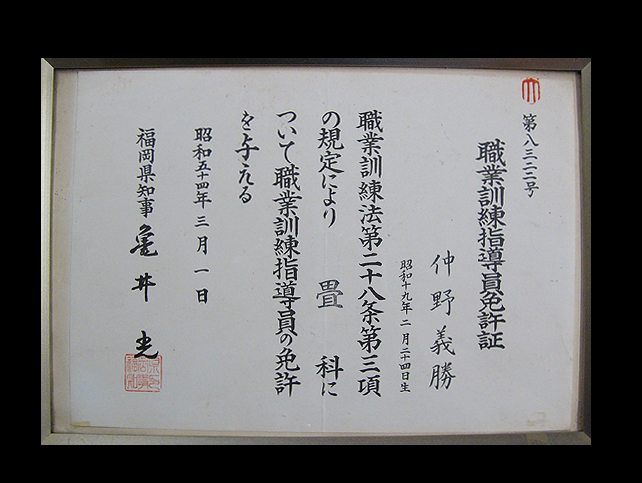 第八三二二号
職業訓練指導員免許証
仲野義勝
昭和十九年二月二十四日生
職業訓練法第二十八条第三項
の規定により 畳 科に
ついて職業訓練指導員の免許
を与える
昭和五十四年三月一日
福岡県知事 亀井光